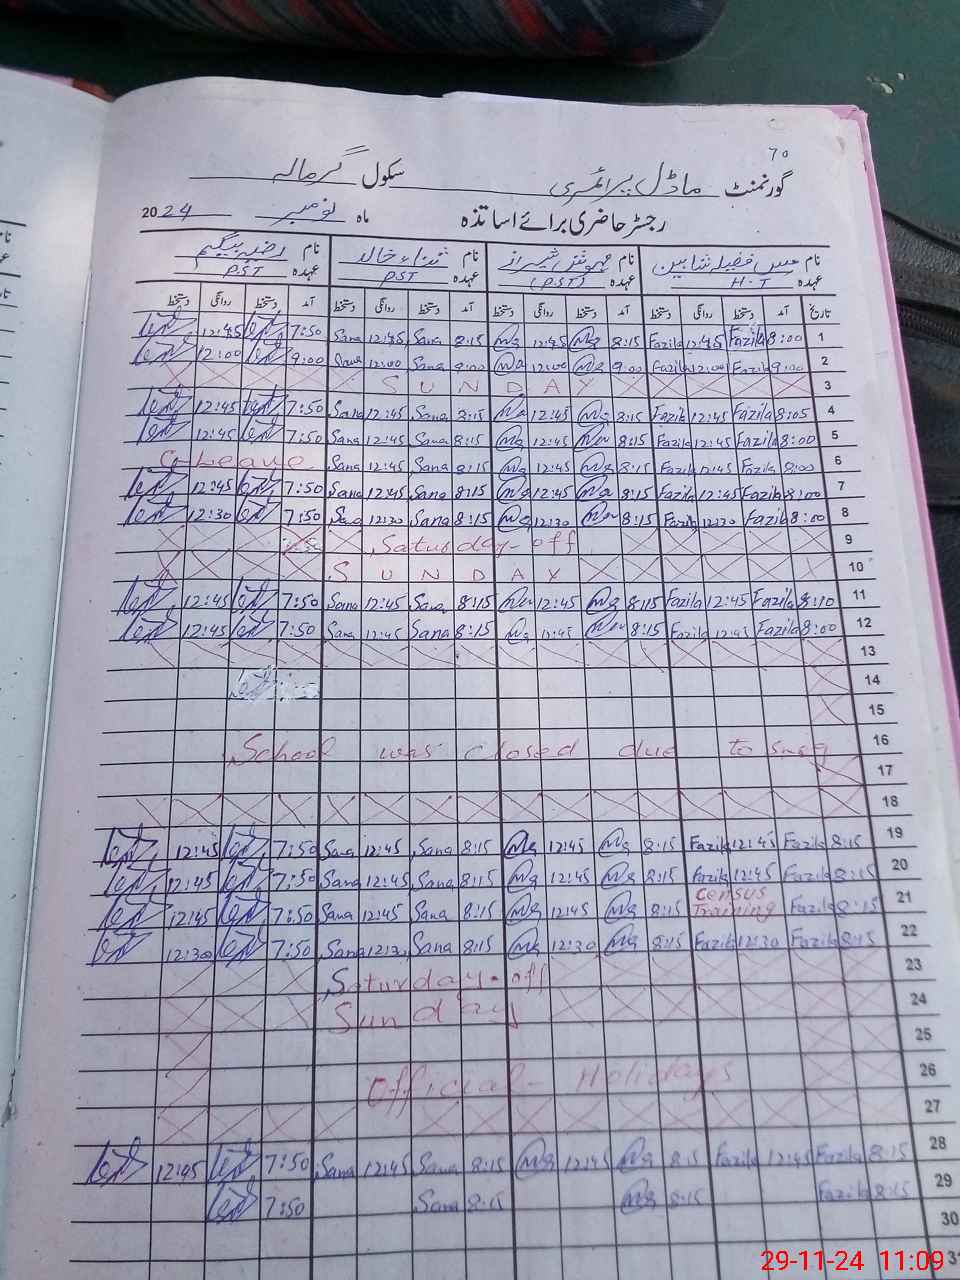 70
گورنمنٹ ماڈل پرائمری سکول گرمالہ
رجسٹر حاضری برائے اساتذہ ماہ نومبر 2024
نام مس فضیلہ شاہین نام مہوش شیراز نام ثناء خالد نام رضیہ بیگم
عہدہ H.T عہدہ (PST) عہدہ PST عہدہ PST
تاریخ آمد دستخط روانگی دستخط آمد دستخط روانگی دستخط آمد دستخط روانگی دستخط آمد دستخط روانگی دستخط
12:45 7:50 Sana 12:45 Sana 8:15 12:45 8:15 Fazila 12:45 Fazila 8:00 1
12:00 9:00 Sana 12:00 Sana 9:00 12:00 9:00 Fazila 12:00 Fazila 9:00 2
SUNDAY 3
12:45 7:50 Sana 12:45 Sana 8:15 12:45 8:15 Fazila 12:45 Fazila 8:05 4
12:45 7:50 Sana 12:45 Sana 8:15 12:45 8:15 Fazila 12:45 Fazila 8:00 5
C-Leave Sana 12:45 Sana 8:15 12:45 8:15 Fazila 12:45 Fazila 8:00 6
12:45 7:50 Sana 12:45 Sana 8:15 12:45 8:15 Fazila 12:45 Fazila 8:00 7
12:30 7:50 Sana 12:30 Sana 8:15 12:30 8:15 Fazila 12:30 Fazila 8:00 8
Saturday-off 9
SUNDAY 10
12:45 7:50 Sana 12:45 Sana 8:15 12:45 8:15 Fazila 12:45 Fazila 8:10 11
12:45 7:50 Sana 12:45 Sana 8:15 12:45 8:15 Fazila 12:45 Fazila 8:00 12
13
14
15
School was closed due to smog 16
17
18
12:45 7:50 Sana 12:45 Sana 8:15 12:45 8:15 Fazila 12:45 Fazila 8:15 19
12:45 7:50 Sana 12:45 Sana 8:15 12:45 8:15 Fazila 12:45 Fazila 8:15 20
12:45 7:50 Sana 12:45 Sana 8:15 12:45 8:15 Census Training Fazila 8:15 21
12:30 7:50 Sana 12:30 Sana 8:15 12:30 8:15 Fazila 12:30 Fazila 8:15 22
Saturday-off 23
Sunday 24
25
Official-Holidays 26
27
12:45 7:50 Sana 12:45 Sana 8:15 12:45 8:15 Fazila 12:45 Fazila 8:15 28
7:50 Sana 8:15 8:15 Fazila 8:15 29
30
31
29-11-24 11:09